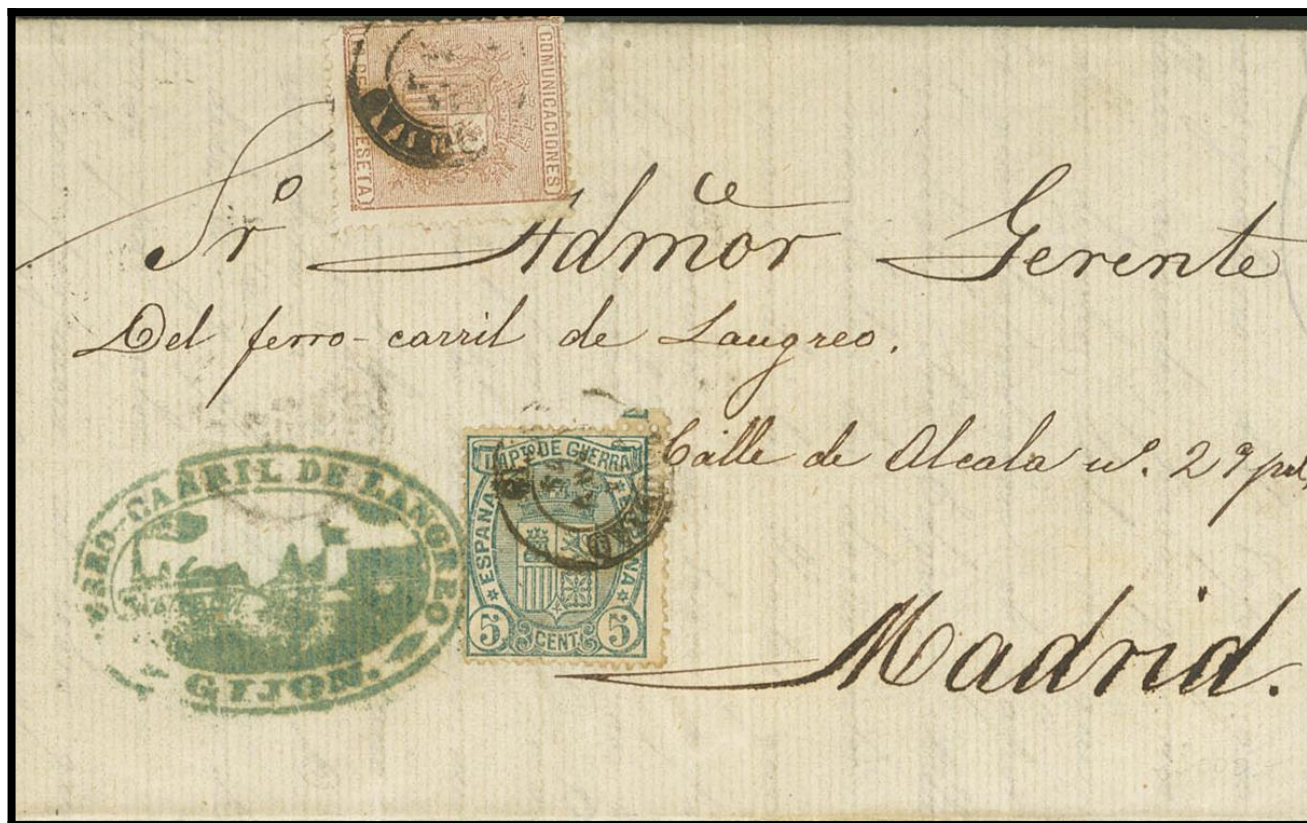 COMUNICACIONES
PESETA
Sr.º Admõr ce Gerente
Del ferro-carril de Langreo.
Calle de Alcala nº. 29
Madrid.
IMPTO DE GUERRA
ESPAÑA
5 CENT. 5
FERRO-CARRIL DE LANGREO
GIJON.